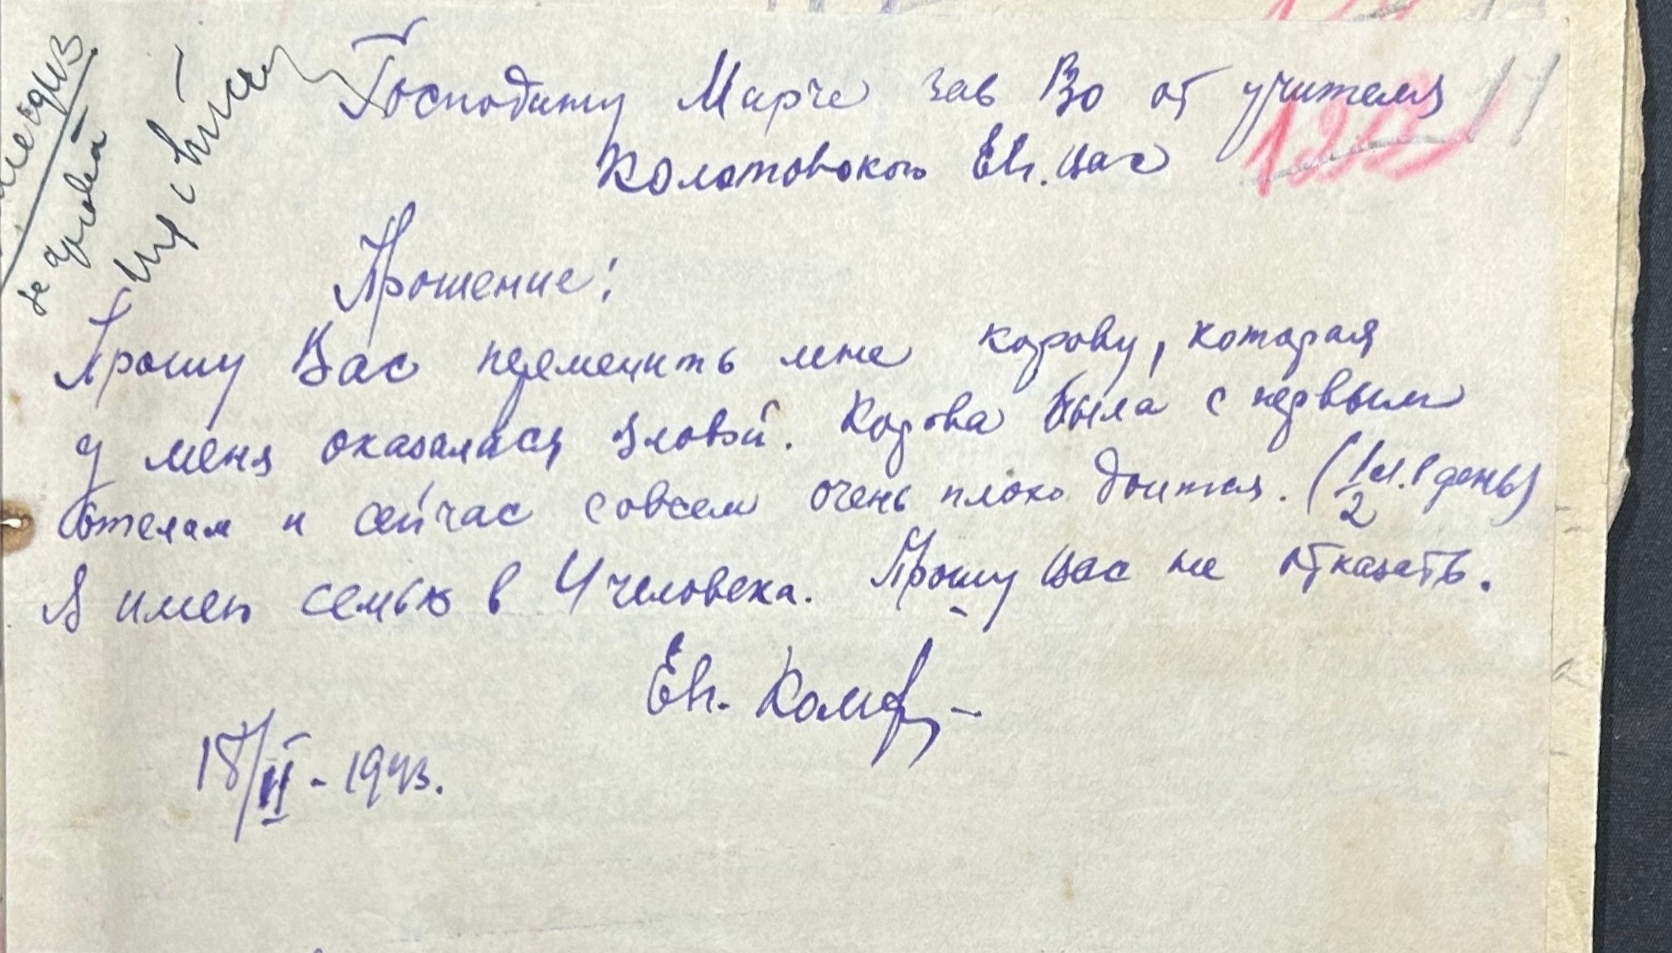 Господину Марче зав Во от учителя
Прошение!
Прошу Вас переменить мне корову, которая
у меня оказалася яловой. Корова была с первым
отелам и сейчас совсем очень плохо доится. (1/2 л. в день)
Я имею семью в 4 человека. Прошу вас не отказать.
Ев.
18/II - 1943.